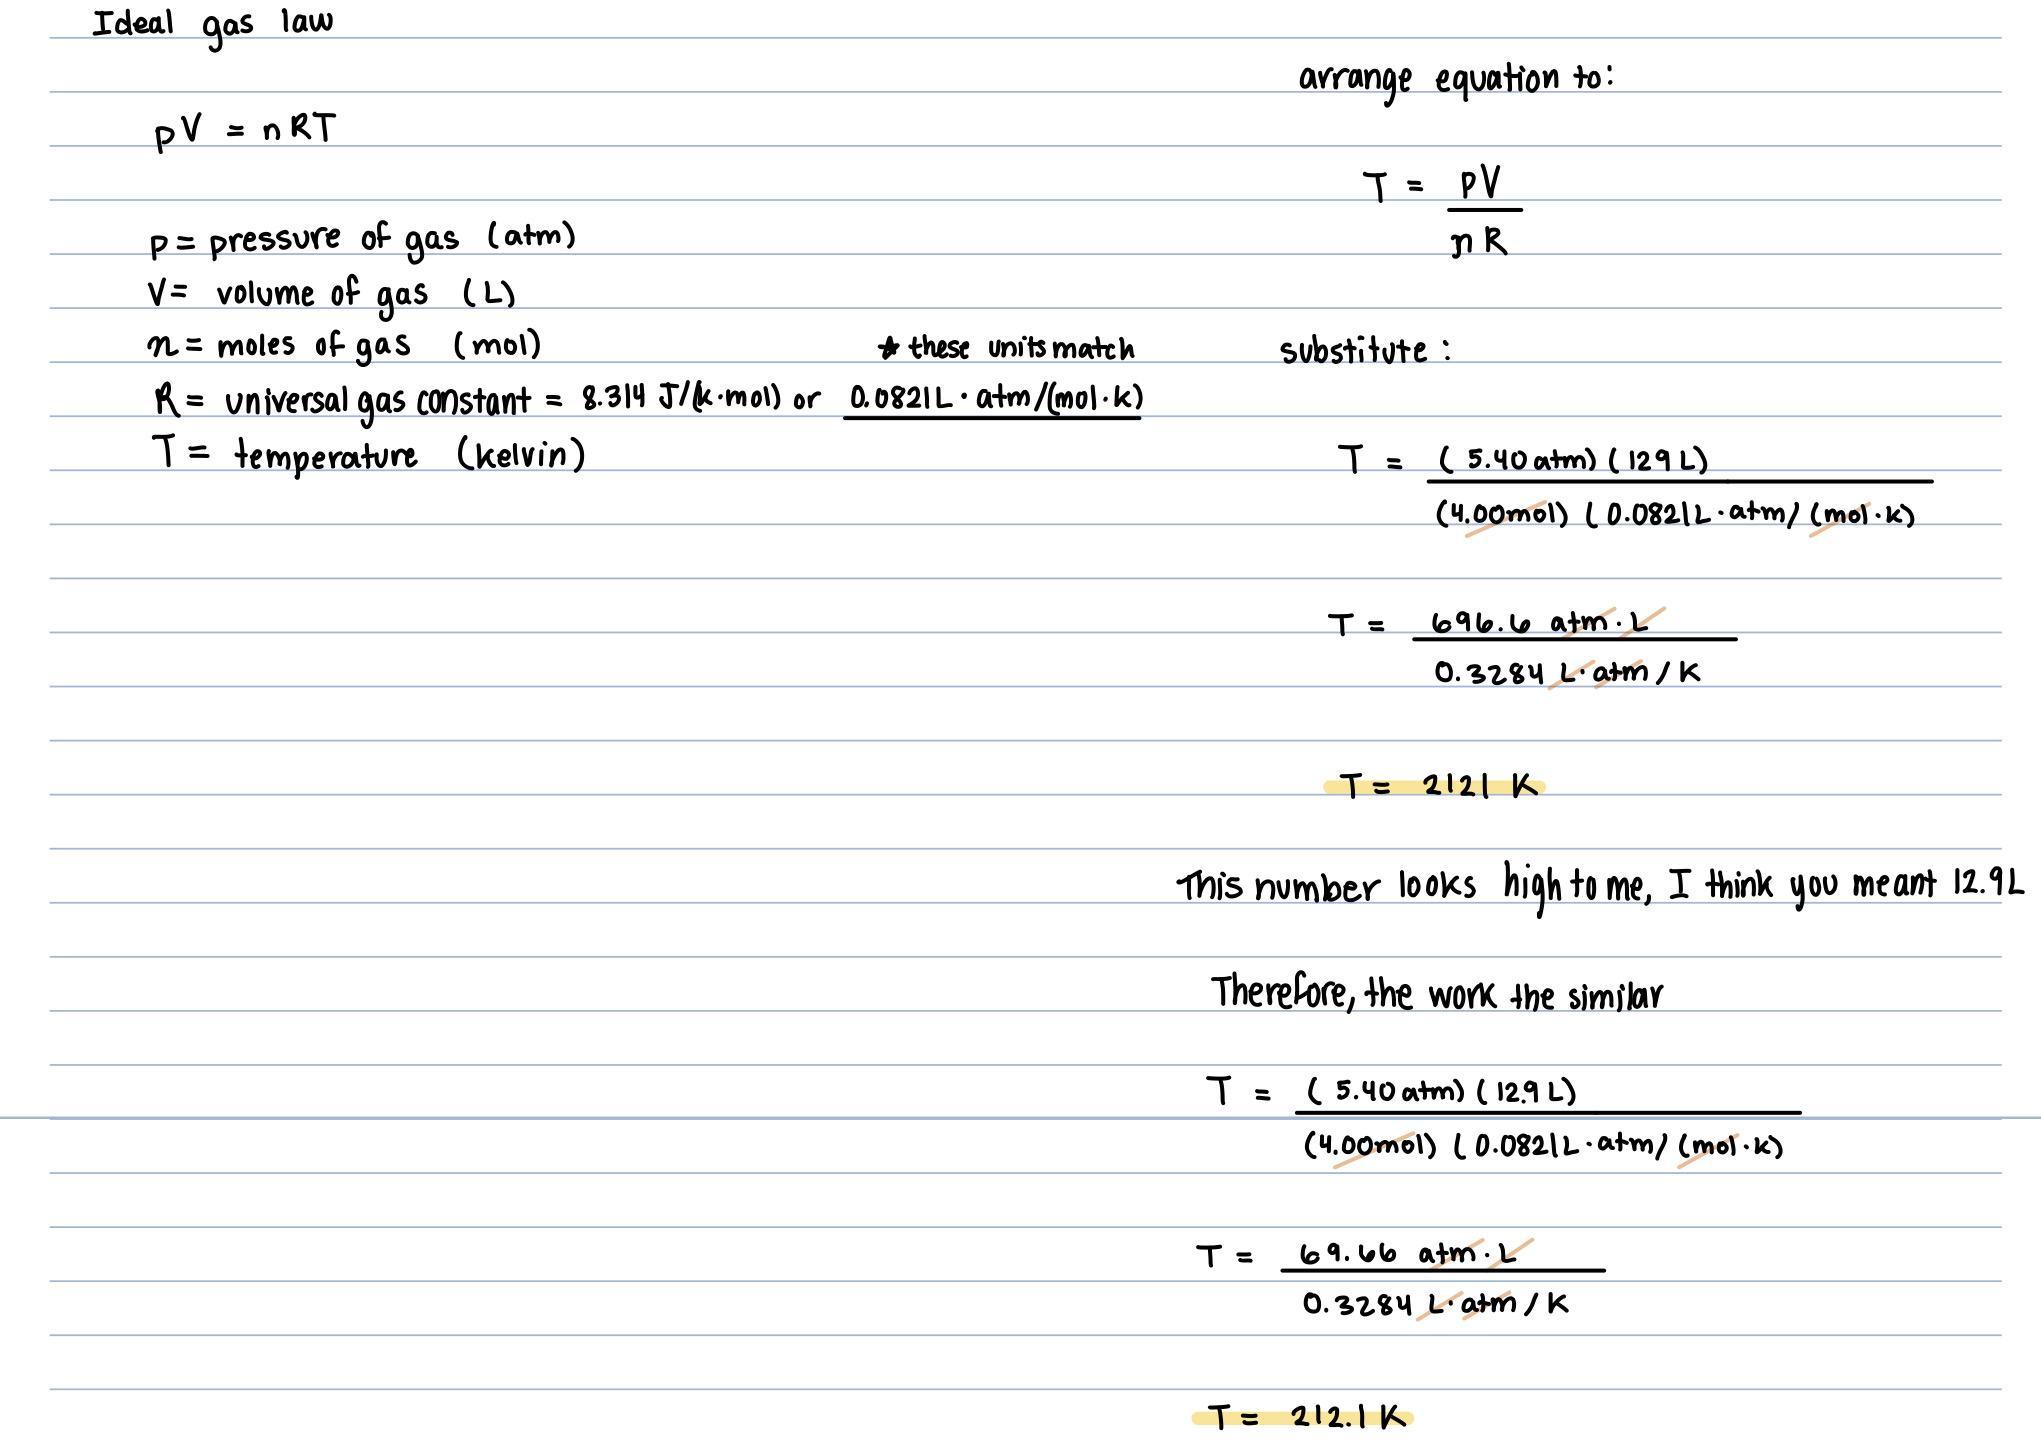 Ideal gas law
pV = nRT
p = pressure of gas (atm)
V = volume of gas (L)
n = moles of gas (mol)
★ these units match
R = universal gas constant = 8.314 J/(k·mol) or 0.0821L·atm/(mol·k)
T = temperature (kelvin)
arrange equation to:
T = pV
nR
substitute:
T = (5.40 atm) (129 L)
(4.00mol) (0.0821L·atm/(mol·k)
T = 696.6 atm·L
0.3284 L·atm/K
T = 2121 K
This number looks high to me, I think you meant 12.9L
Therefore, the work the similar
T = (5.40 atm) (12.9 L)
(4.00mol) (0.0821L·atm/(mol·k)
T = 69.66 atm·L
0.3284 L·atm/K
T = 212.1 K